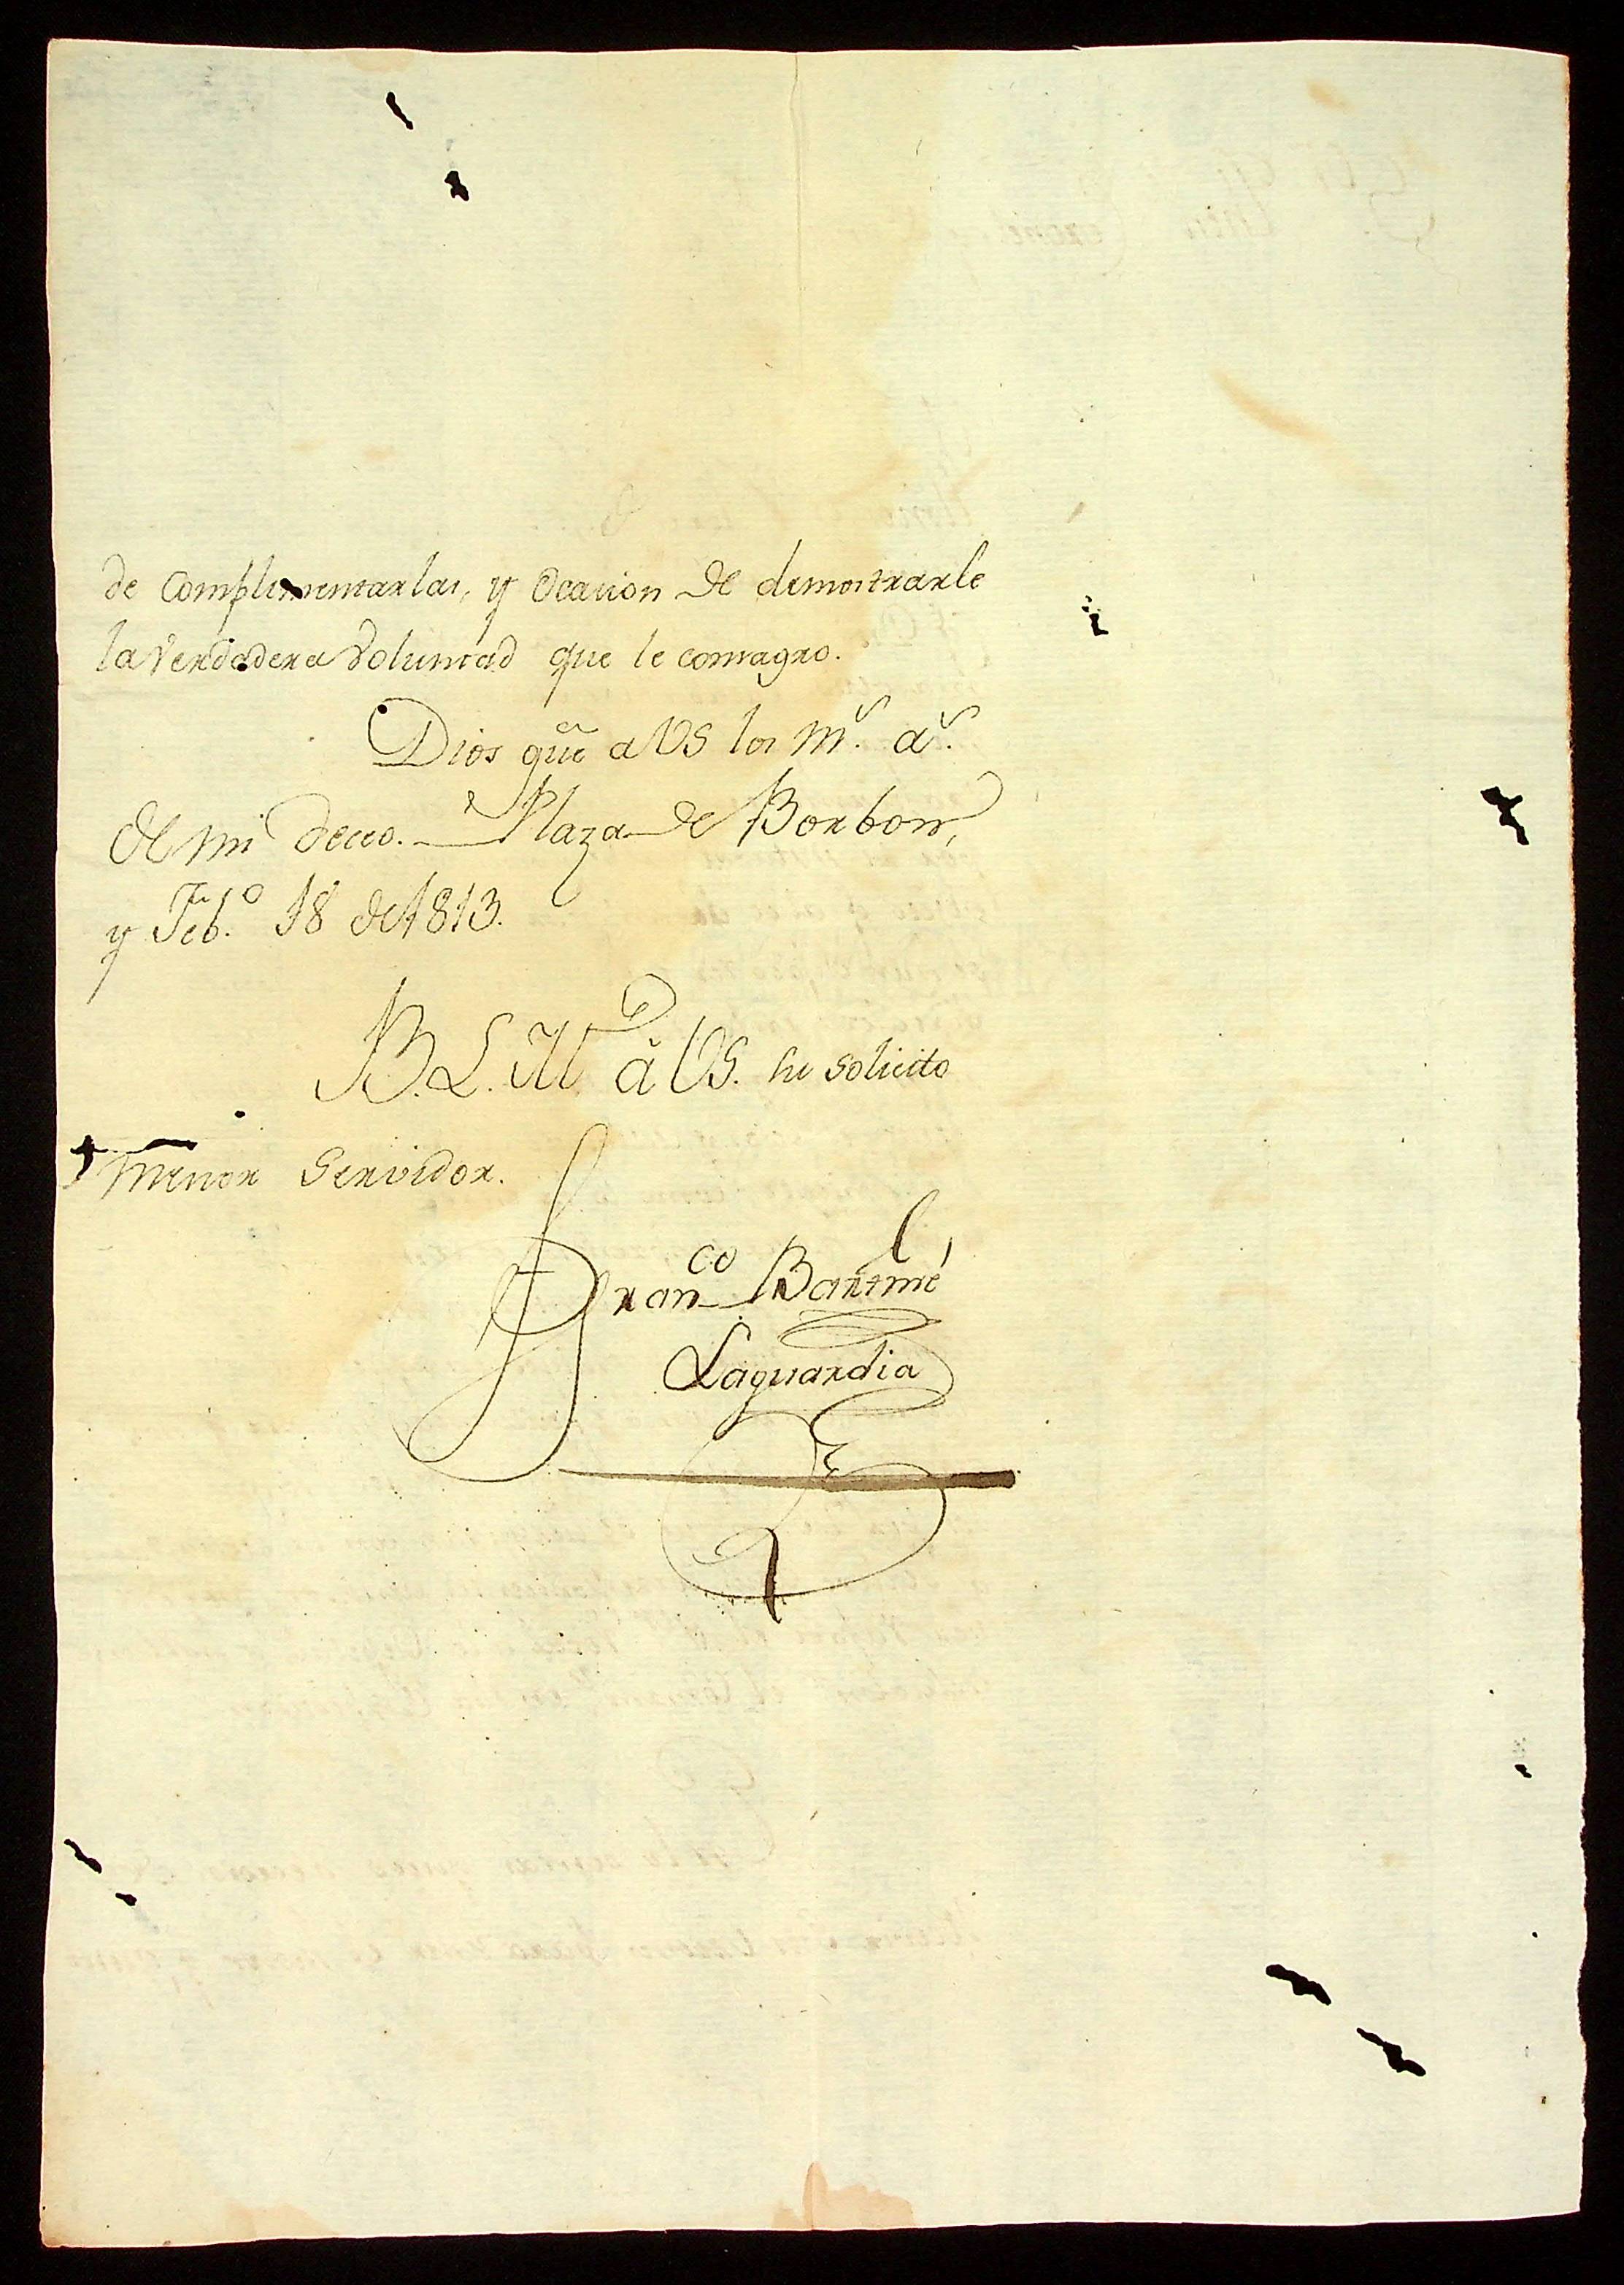 de Complimentarlas, y Ocacion de demostrarle
la Verdadera Voluntad que le consagro.
Dios gũe a VS los ms. as.
de mi deceo. Plaza de Borbon,
y Feb.o 18 de 1813.
B. L. M. à VS. su solicito
menor Servidor.
Franco Bartmé
Laguardia